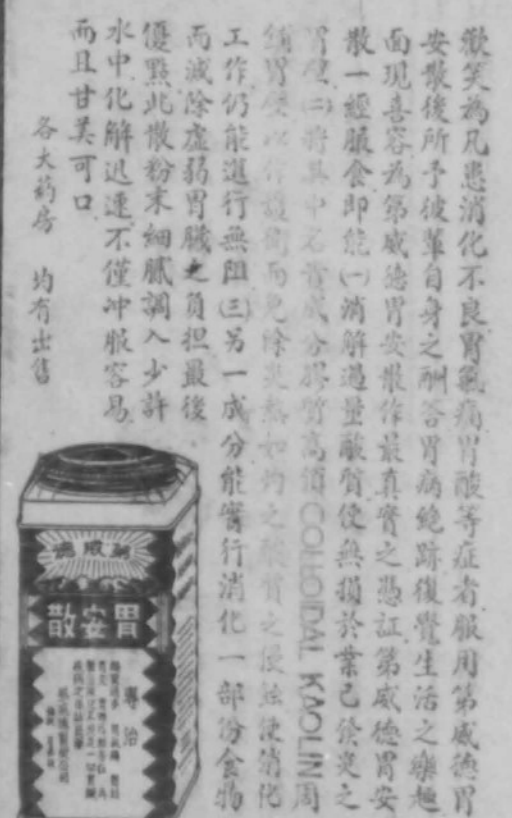 歡笑為凡患消化不良胃氣痛胃酸等症者服用第威德胃
安散後所予彼輩自身之酬答胃病絶跡復覺生活之樂趣
面現喜容為第威德胃安散作最真實之憑証第威德胃安
散一經服食即能㈠消解過量酸質使無損於業已發炎之
胃壁㈡將其中名貴成分膠質高嶺COLLOIDAL KAOLIN周
鋪胃壁以作護衛而免除炎熱如灼之酸質之侵蝕使消化
工作仍能進行無阻㈢另一成分能實行消化一部份食物
而減除虛弱胃臟之負担最後
優點此散粉末細膩調入少許
水中化解迅速不僅冲服容易
而且甘美可口
各大葯房 均有出售
第威德
胃安散
專治